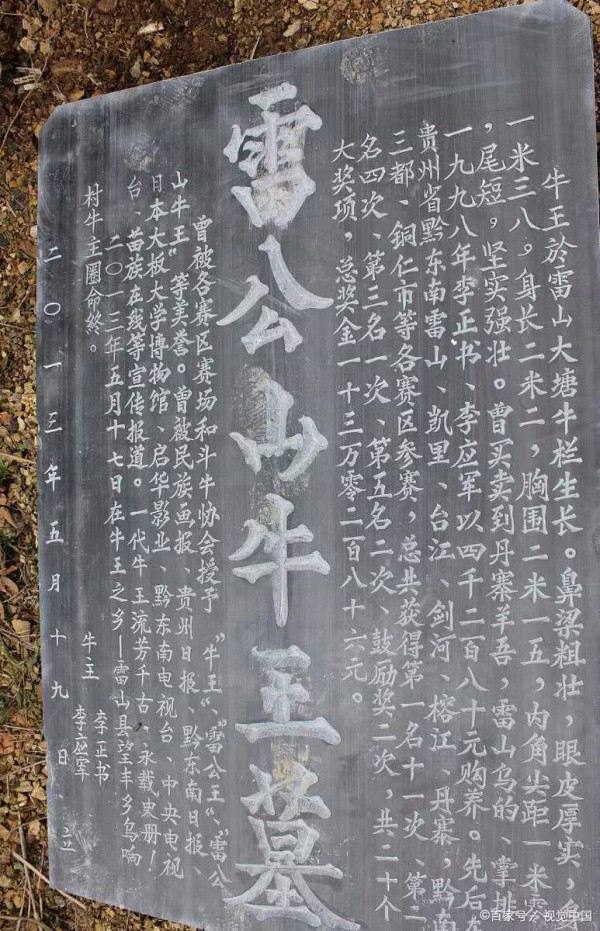 牛王於雷山大塘牛栏生长。鼻梁粗壮，眼皮厚实，身
一米三八，身长二米二，胸围二米一五，内角尖距一米零
，尾短，坚实强壮。曾买卖到丹寨羊吾，雷山乌的、掌排
一九九八年李正书、李应军以四千二百八十元购养。先后在
贵州省黔东南雷山、凯里、台江、剑河、榕江、丹寨，黔南
三都、铜仁市等各赛区参赛，总共获得第一名十一次、第二
名四次、第三名一次、第五名二次、鼓励奖二次，共二十个
大奖项，总奖金一十三万零二百八十六元。
雷公山牛王墓
曾被各赛区赛场和斗牛协会授予“牛王”、“雷公王”、“雷公
山牛王”等美誉。曾被民族画报、贵州日报、黔东南日报、
日本大板大学博物馆、启华影业、黔东南电视台、中央电视
台、苗族在线等宣传报道。一代牛王流芳千古，永载史册！
二〇一三年五月十七日在牛王之乡—雷山县望丰乡乌响
村牛主圈命终。
牛主
李正书
李应军
二〇一三年五月十九日 立
©百家号／视觉中国